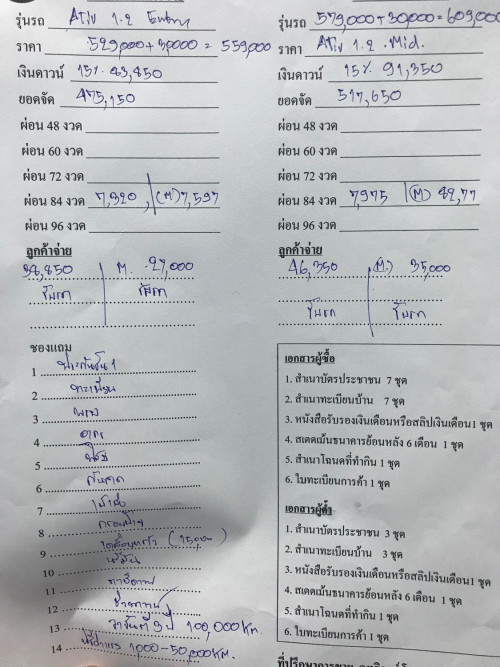 รุ่นรถ ATIV 1.2 Entry
ราคา 529,000+30,000 = 559,000
เงินดาวน์ 15% 83,850
ยอดจัด 475,150
ผ่อน 48 งวด
ผ่อน 60 งวด
ผ่อน 72 งวด
ผ่อน 84 งวด 7,320 (M) 7,597
ผ่อน 96 งวด
ลูกค้าจ่าย
38,850 M. 27,000
รับรถ รับรถ
ของแถม
1 ประกันชั้น 1
2 ทะเบียน
3 พรบ
4
5
6
7
8 กรอบป้าย
9 (15,000)
10
11
12
13 3 ปี 100,000 Km.
14 1000-50,000 Km.
รุ่นรถ 579,000+30,000=609,000
ราคา ATIV 1.2 Mid.
เงินดาวน์ 15% 91,350
ยอดจัด 517,650
ผ่อน 48 งวด
ผ่อน 60 งวด
ผ่อน 72 งวด
ผ่อน 84 งวด 7,975 (M) 82,77
ผ่อน 96 งวด
ลูกค้าจ่าย
46,350 (M.) 35,000
รับรถ รับรถ
เอกสารผู้ซื้อ
1. สำเนาบัตรประชาชน 7 ชุด
2. สำเนาทะเบียนบ้าน 7 ชุด
3. หนังสือรับรองเงินเดือนหรือสลิปเงินเดือน1 ชุด
4. สเตดเม้นธนาคารย้อนหลัง 6 เดือน 1 ชุด
5. สำเนาโฉนดที่ทำกิน 1 ชุด
6. ใบทะเบียนการค้า 1 ชุด
เอกสารผู้ค้ำ
1. สำเนาบัตรประชาชน 3 ชุด
2. สำเนาทะเบียนบ้าน 3 ชุด
3. หนังสือรับรองเงินเดือนหรือสลิปเงินเดือน1 ชุด
4. สเตดเม้นธนาคารย้อนหลัง 6 เดือน 1 ชุด
5. สำเนาโฉนดที่ทำกิน 1 ชุด
6. ใบทะเบียนการค้า 1 ชุด
ที่ปรึกษาการขาย